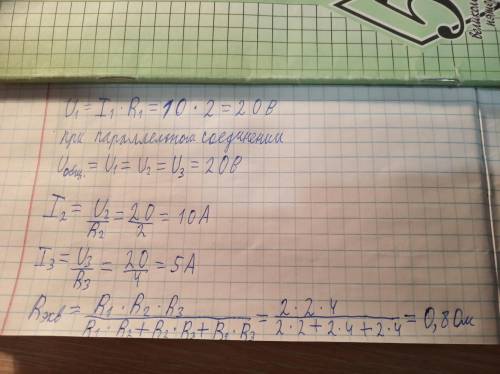 U₁ = I₁ · R₁ = 10 · 2 = 20 В
при параллельном соединении
Uобщ. = U₁ = U₂ = U₃ = 20 В
I₂ = U₂/R₂ = 20/2 = 10 А
I₃ = U₃/R₃ = 20/4 = 5 А
Rэкв = R₁ · R₂ · R₃ / R₁ · R₂ + R₂ · R₃ + R₁ · R₃ = 2 · 2 · 4 / 2 · 2 + 2 · 4 + 2 · 4 = 0,8 Ом